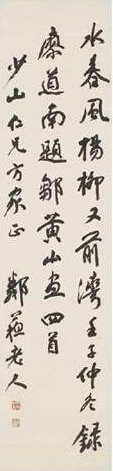 水春風楊柳又前灣壬子仲冬錄
縻道南題鄒黃山畫四首
少山仁兄方家正 鄰蘇老人